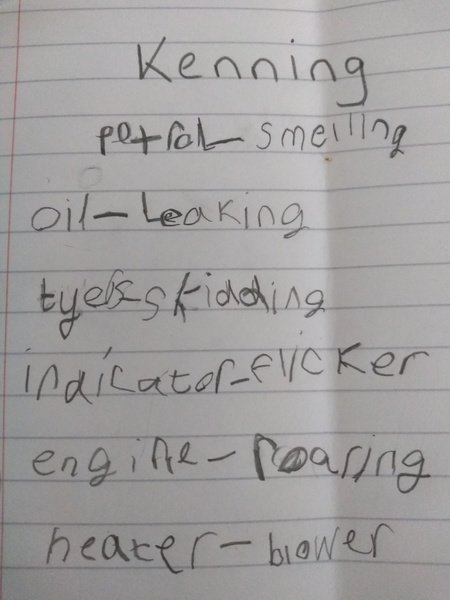 Kenning
petrol-smelling
oil-leaking
tyers-skidding
indicator-flicker
engine-roaring
heater-blower